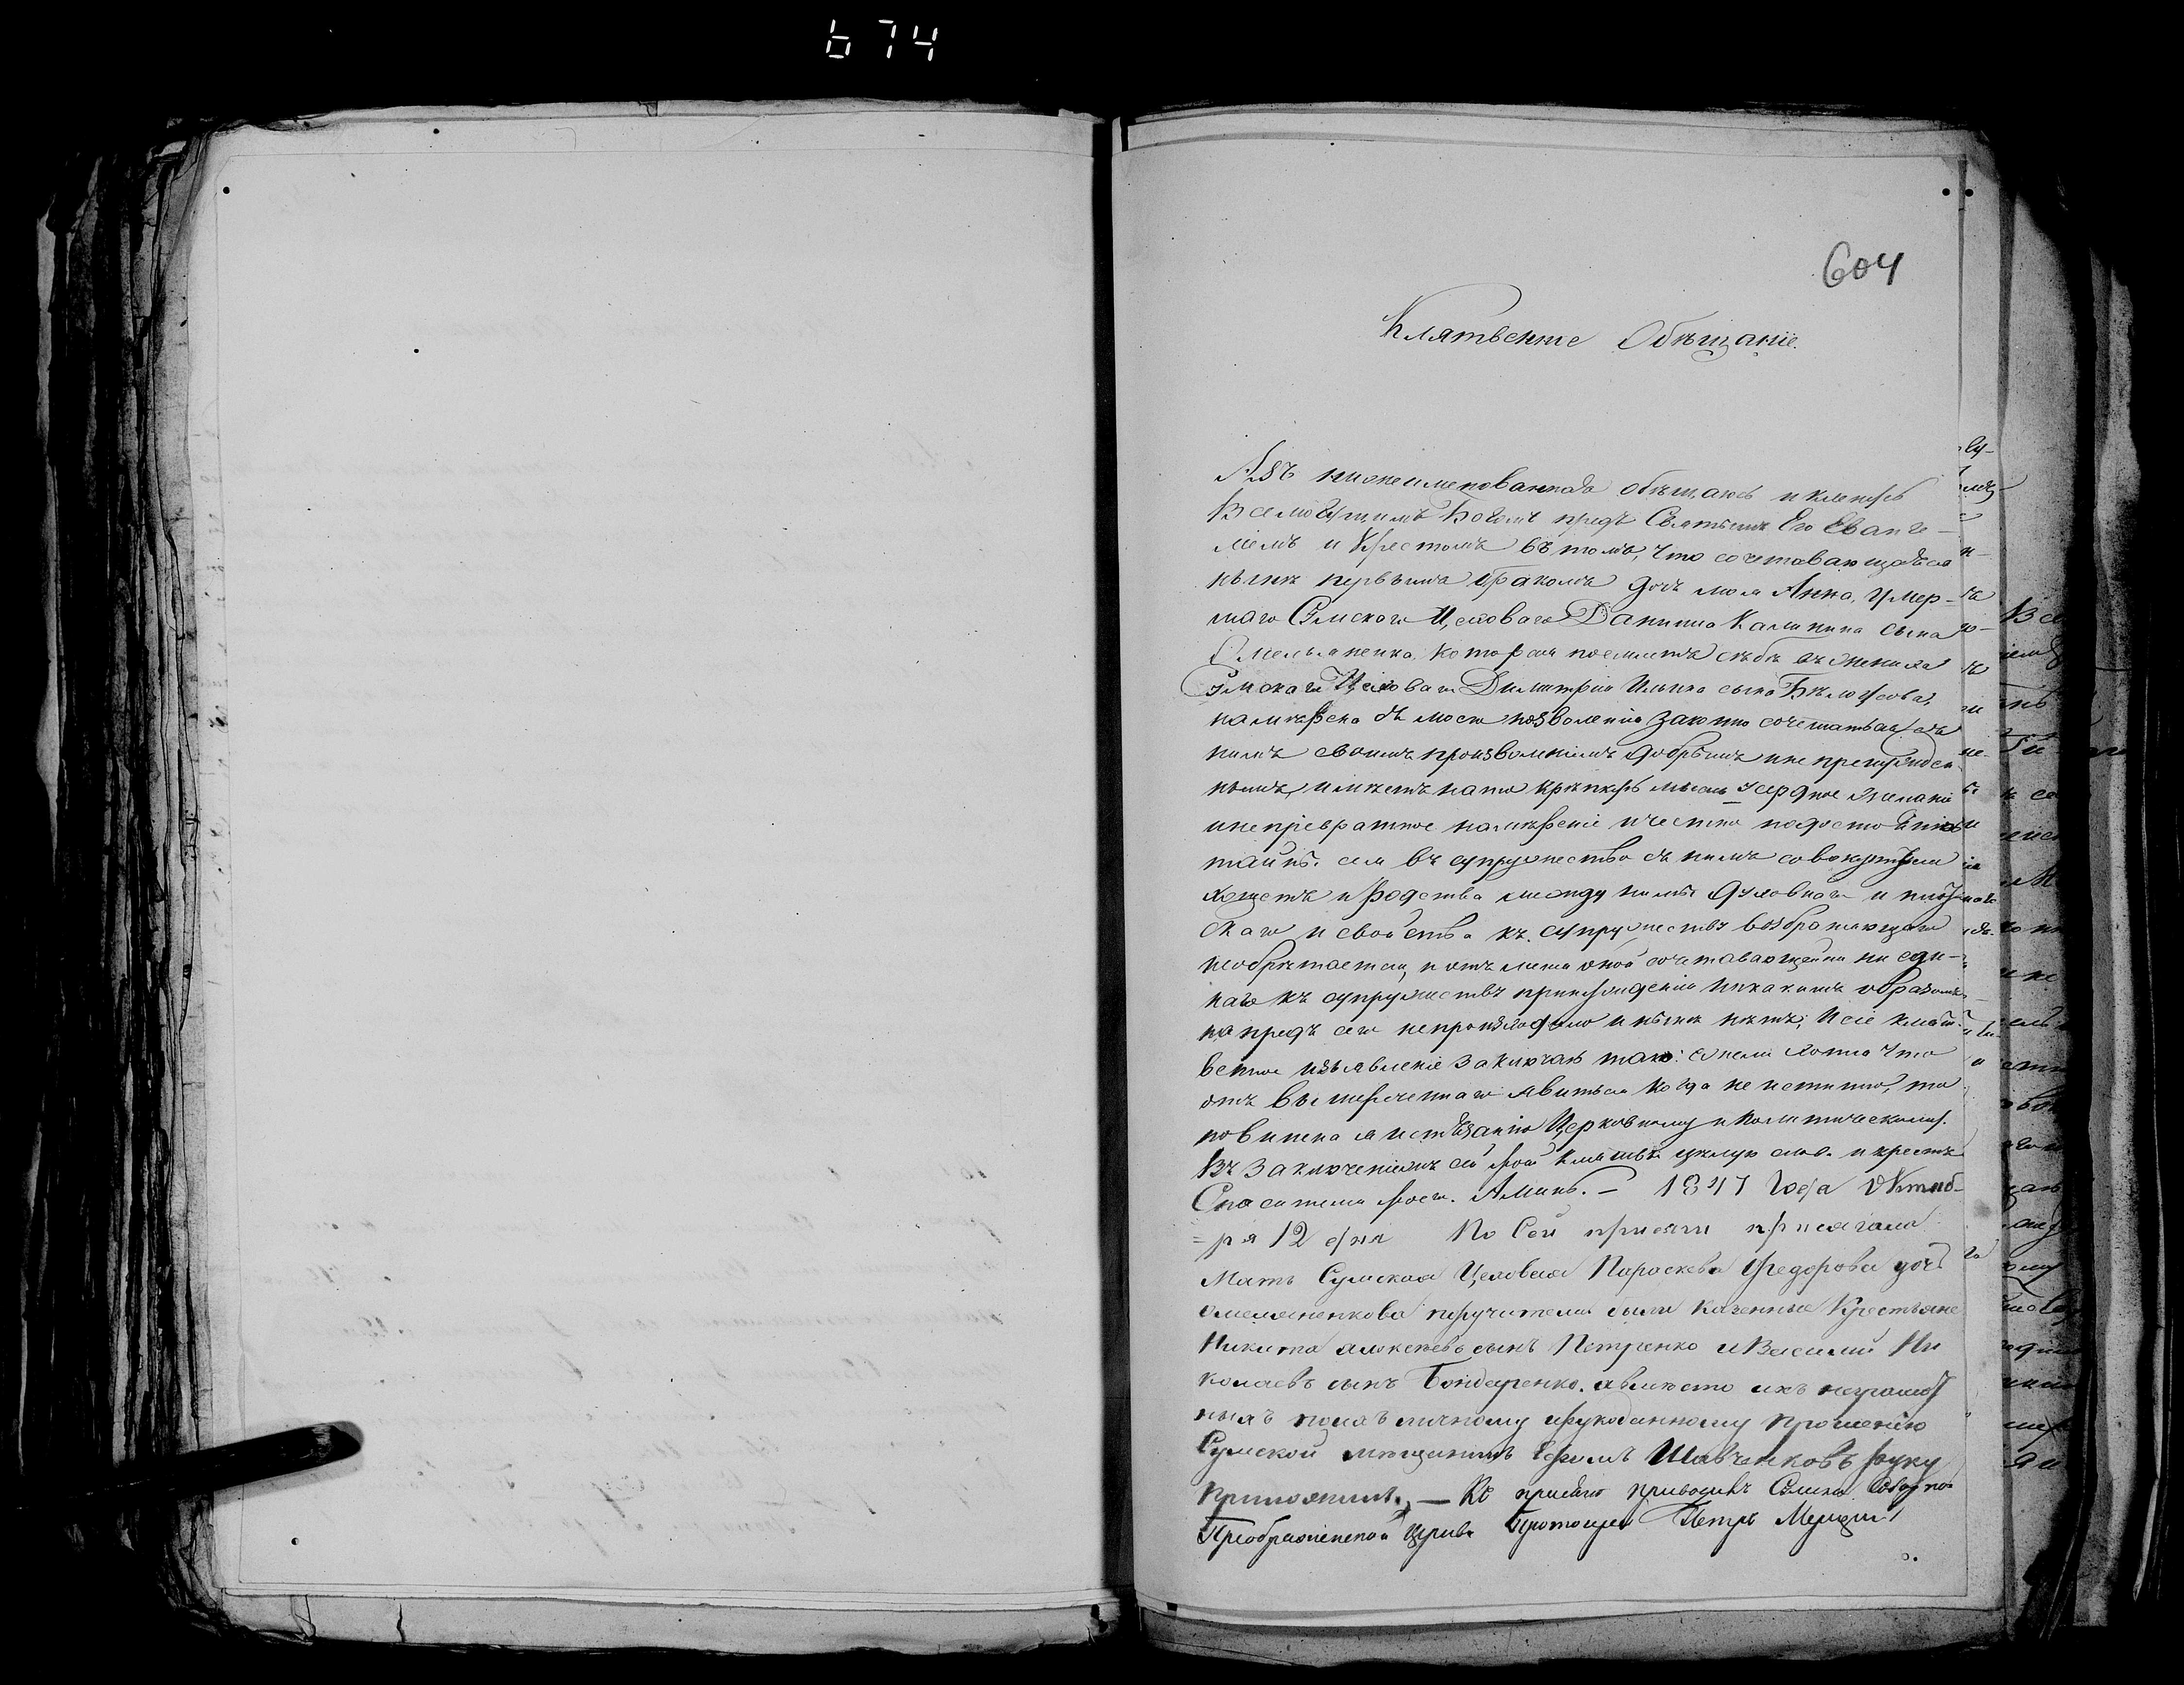 674
604
Клятвенное Обѣщаніе.
Азъ нижеименованная обѣщаюсь и кленусь
Всемогущимъ Богомъ предъ Святымъ Его Еванге-
ліемъ и Крестомъ въ томъ, что сочетовающаяся
нынѣ первымъ бракомъ дочь моя Анна, умер-
шаго Сумскаго Цеховаго Даниила Калинина сына
Омельяненка, которая поемлетъ себѣ въ жениха
Сумскаго Цеховаго Димитрія Ильина сына Бѣлоусова,
намѣрена съ моего позволенія законно сочетаться съ
нимъ своимъ произволеніемъ добрымъ и непренужден-
нымъ, и имѣетъ на то крѣпкую мысль усердное желаніе
и непревратное намѣреніе и честно по достоянію
тайны сея въ супружество съ нимъ совокупится
хощетъ и родства между ними духовнаго и плот-
скаго и свойства къ супружеству возбраняющаго
необрѣтается, и отъ мене оной сочетавающейся ни еди-
наго къ супружеству принужденія никакимъ образомъ
на предъ сего непроизходило и нынѣ нѣтъ; и сіе клят-
венное изъявленіе заключаю тако: ежели хотя что
отъ вышереченнаго явиться когда не истинно, то
повинена я истязанію Церковному и Политическому.
Въ заключеніемъ сей моей клятвы цѣлую слова и крестъ
Спасителя моего. Аминь. — 1847 Года Октяб-
=ря 12 дня По Сей присяги присягала
Мать Сумская Цеховая Параскева Федорова дочь
Омеляненкова поручители были казенные Крестьяне
Никита Алексѣевъ сынъ Петренко и Василий Ни
колаевъ сынъ Бондаренко. а вмѣсто ихъ неграмот
ныхъ по ихъ личному и рукоданному прошенію
Сумской мѣщанинъ Ефимъ Шавченковъ руку
приложилъ. — Къ присягѣ приводилъ Сумской Соборной
Преображенской Церкви Протоиерей Петръ